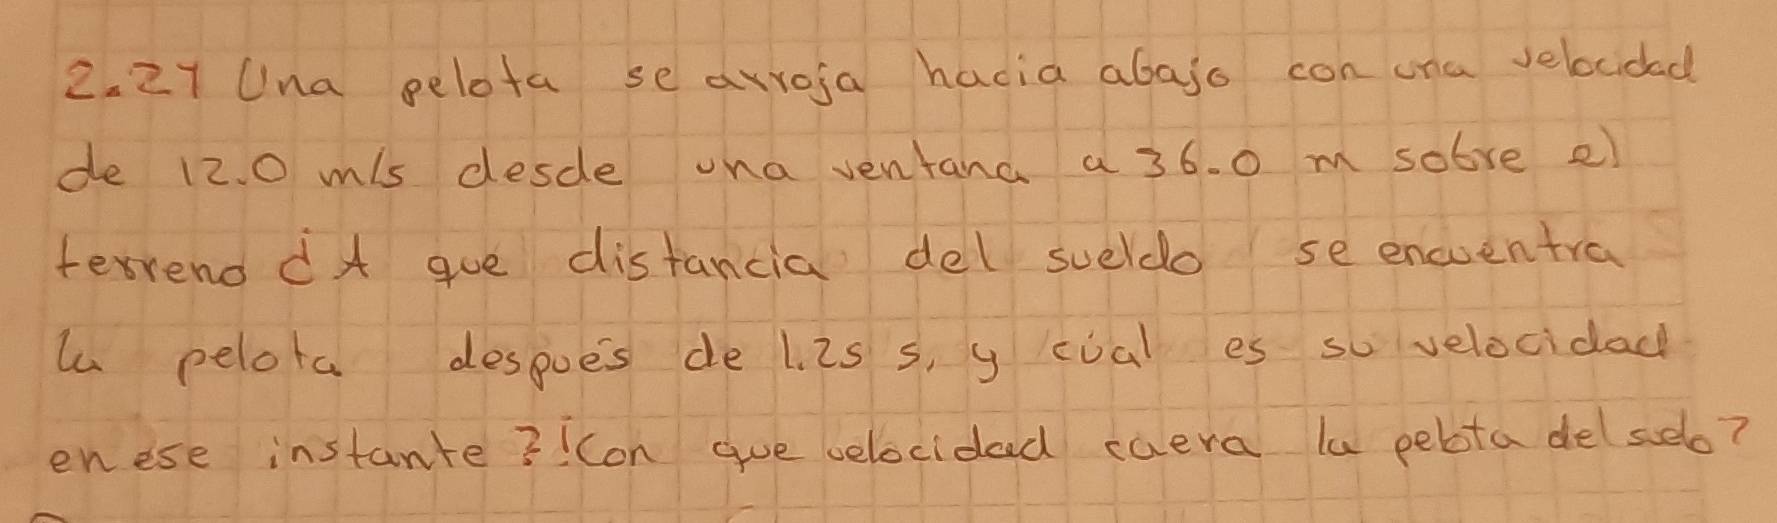 2.27 Una pelota se arroja hacia abajo con una velocidad
de 12.0 m/s desde una ventana a 36.0 m sobre el
terreno ¿A que distancia del sueldo se encuentra
la pelota después de 1.25 s, y cúal es su velocidad
en ese instante? ¿Con que velocidad caera la pelota del suelo?